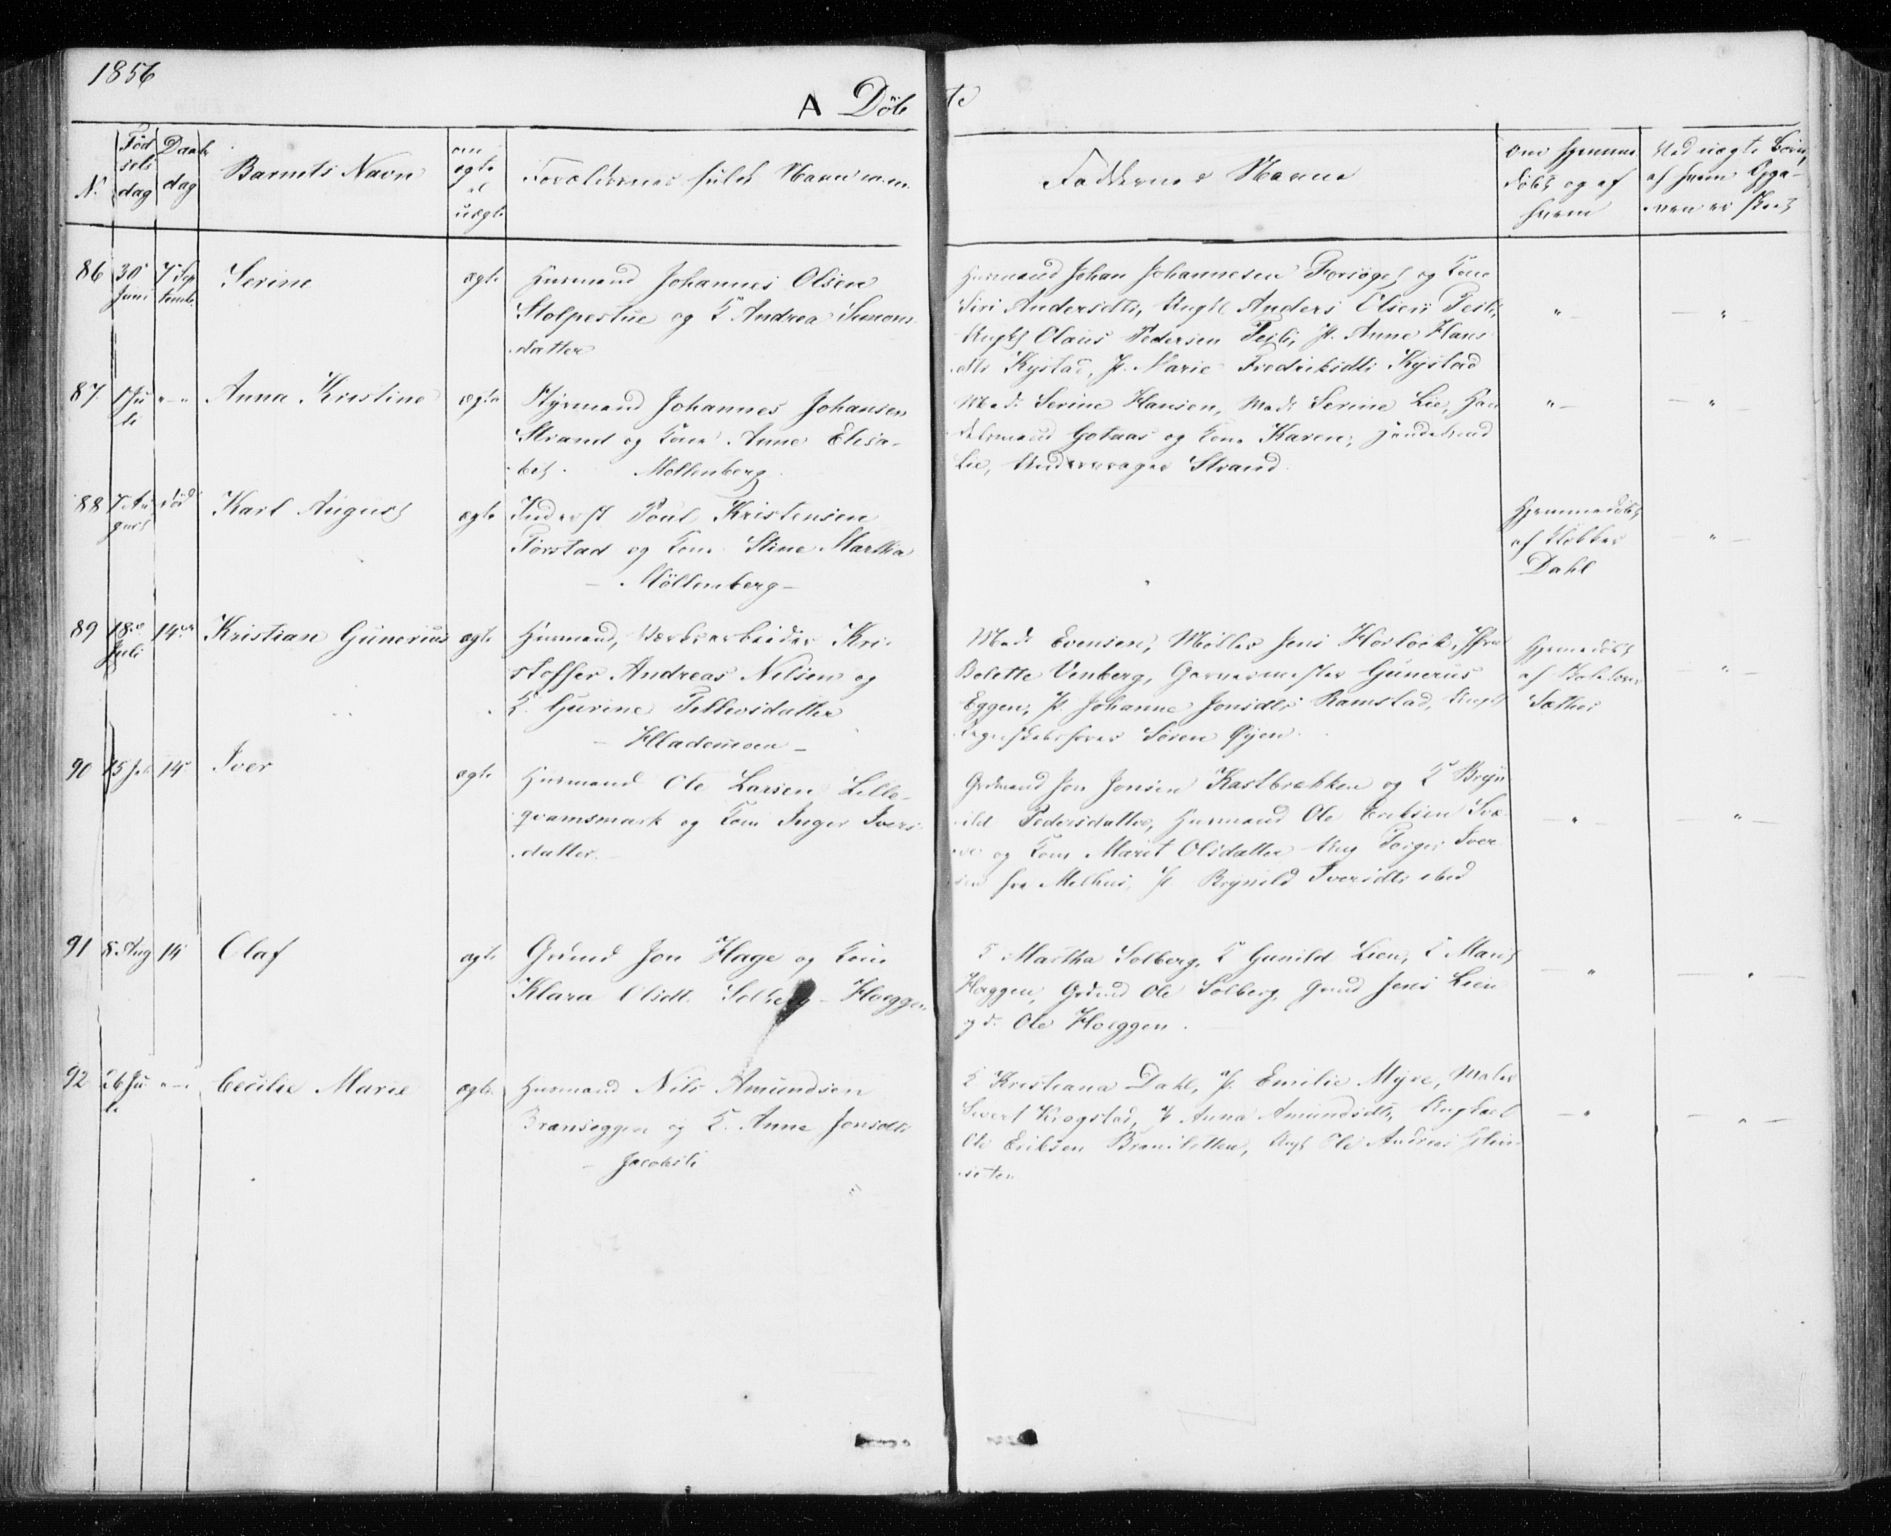 1856
A Döbte
N.
Fød
sels
dag
Daab
dag
Barnets Navn
om
ægte
el
uægte
Forældrenes fulde Navn m.m.
Faddernes Navne
Om hjemme
døbt og af
hvem
Ved uægte Børn,
af hvem Opga-
ven er skeet
86 30 Juni 7 Sep Serine ægte Huusmand Johannes Olsen
Stolpestue og K Andrea Simons
datter
Huusmand Johan Johannesen Forsøget og Kone
Siri Andersdtr, Ungk Anders Olsen
Ungk Claus Pedersen P. Anne Hans
dtr Kystad, P. Marie Fredriksdtr Kystad
87 1 Ju
li Anna Kristine ægte Styrmand Johannes Johansen
Strand og Kone Anne Elisa-
bet. Mollenberg
Mad. Serine Hansen, Mad. Serine Lie, Han
delsmand Gotaas og Kone Karen, Handelsmd
Lie, Strand.
88 7 Au
gust død Karl August ægte Inderst Poul Kristensen
Forstad og Kone Stine Martha
- Möllenberg -
Hjemmedøbt
af Klokker
Dahl
89 18de
Juli 14de Kristian Gunerius ægte Huusmand, Værksarbeider Kri-
stoffer Andreas Nilsen og
K. Gurine Tellevsdatter
- Hlademoen -
Mad. Evensen, Møller Jens Horlock, Jfru
Bolette Venberg, Garvermester Gunerius
Eggen, P. Johanne Jonsdtr Ramstad, Ungk
Søren Øyen.
Hjemmedøbt
af
Sæther
90 14 Iver ægte Huusmand Ole Larsen Lille-
gvamsmark og Kone Inger Ivers
datter.
Grdmand Jon Jonsen Kastbrekken og K Bryn
ild Pedersdatter, Huusmand Ole Eriksen
og Kone Marit Olsdatter Ung Torger Iver
sen fra Melhus, P. Brynild Iversdtr ibid
91 8 Aug 14 Olaf ægte Grdmd Jon Hage og Kone
Klara Olsdt. Solberg - Hoeggen
K Martha Solberg, K Gunild Lien, K Marit
Hoeggen, Grdmd Ole Solberg, Grmd Jens Lien
og d. Ole Hoeggen.
92 26 Ju
li Cecilie Marie ægte Huusmand Nils Amundsen
Brænseggen og K. Anne Jonsdtr
- Jacobsli
K Kristiana Dahl, P. Emilie Myre, Maler
Sivert Krogstad, P Anna Amundsdtr, Ungkarl
Ole Eriksen Brænsletten, Ungk Ole Andreas Stein
seter